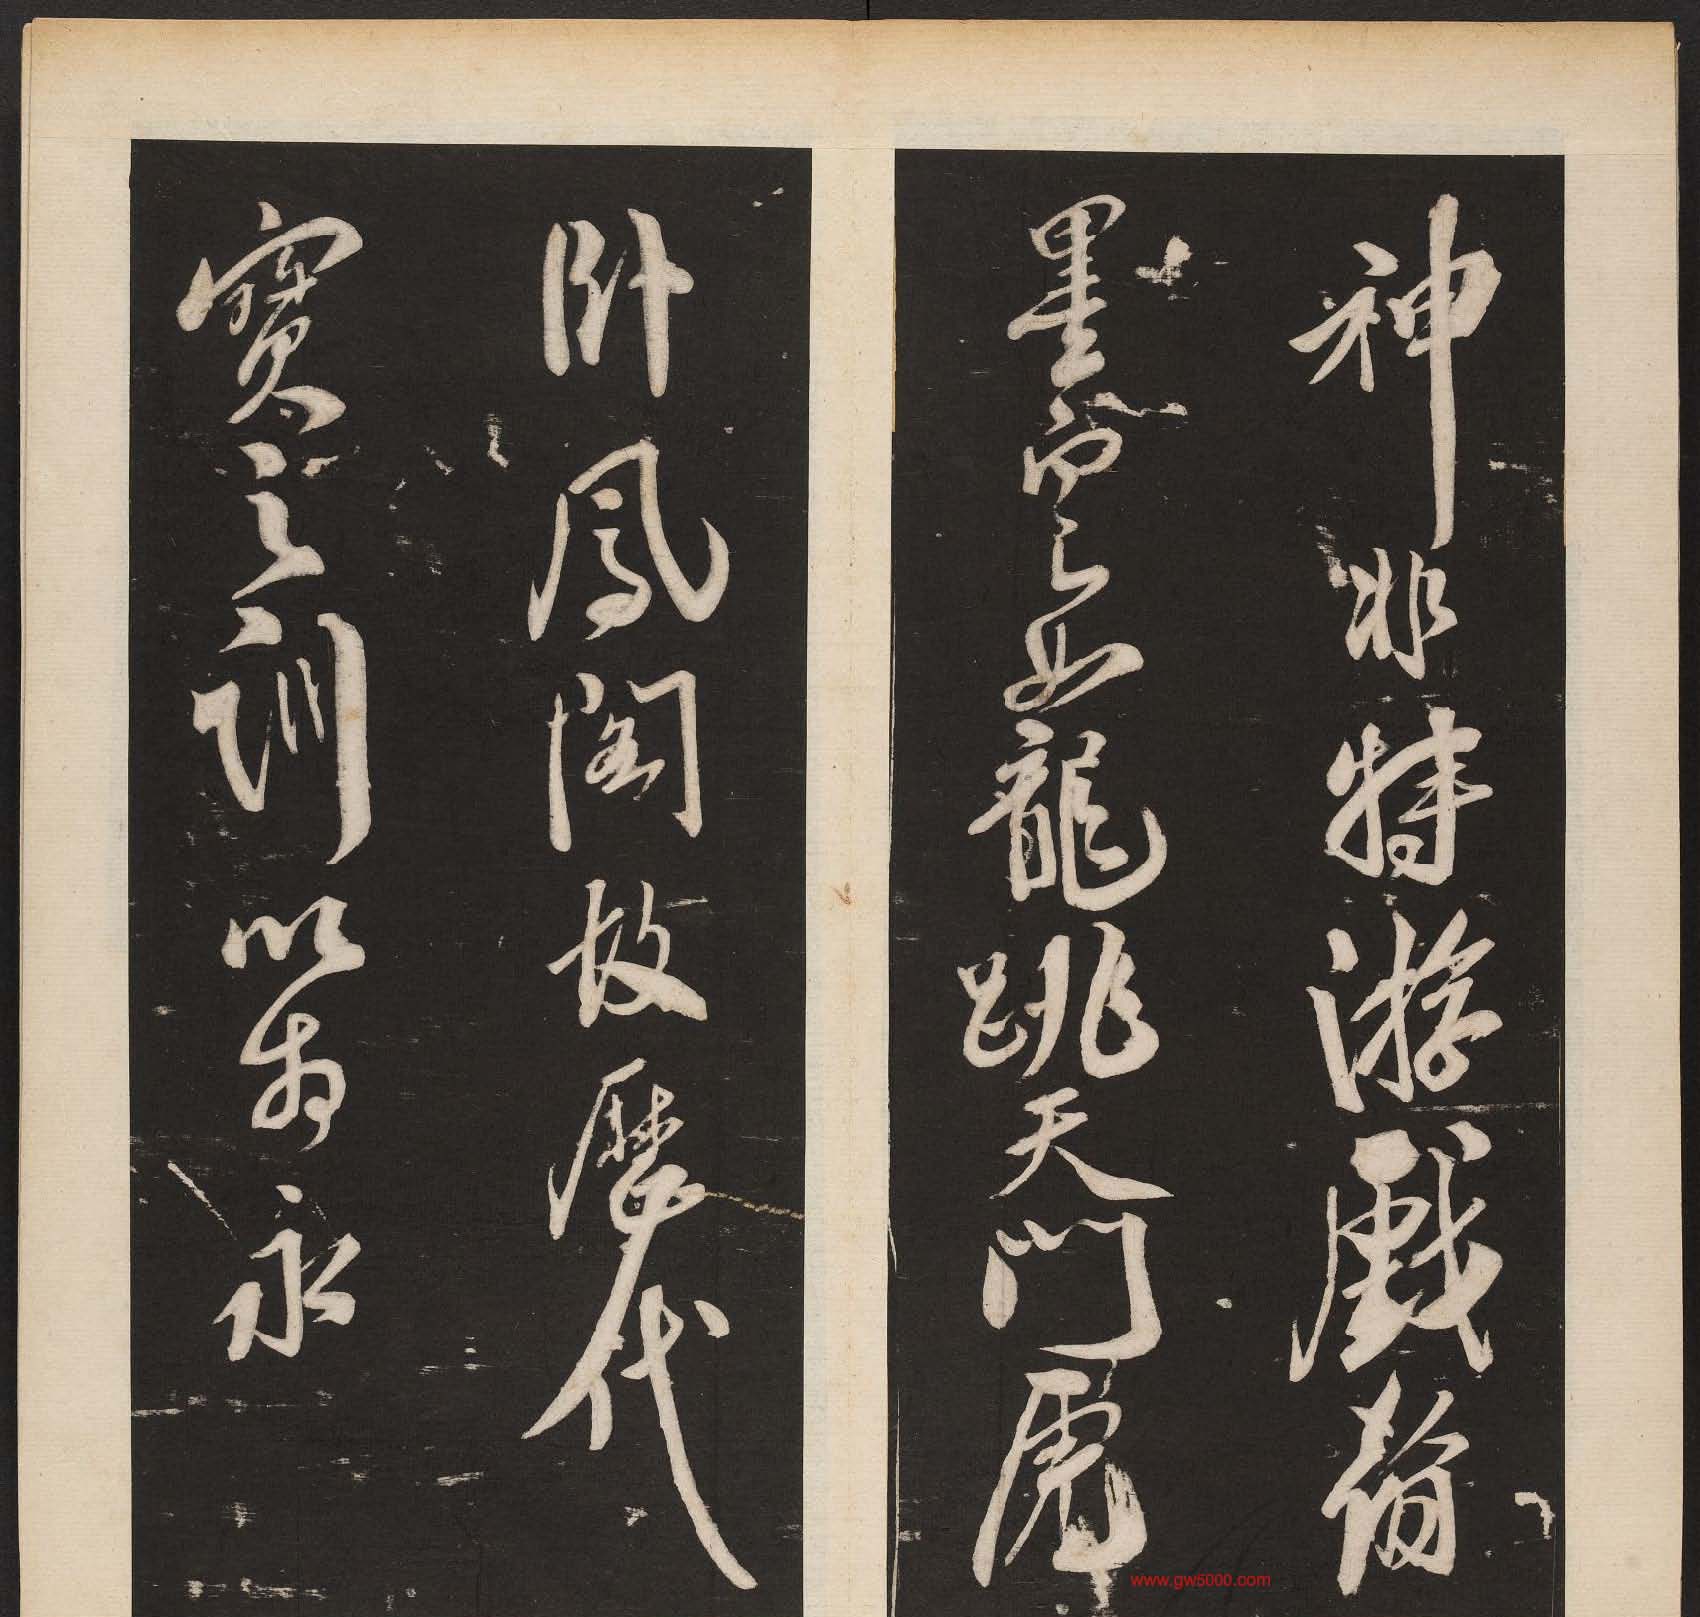 神非特游戲翰
墨而已如龍跳天門虎
卧鳳閣故歷代
寶之訓以為永
www.gw5000.com